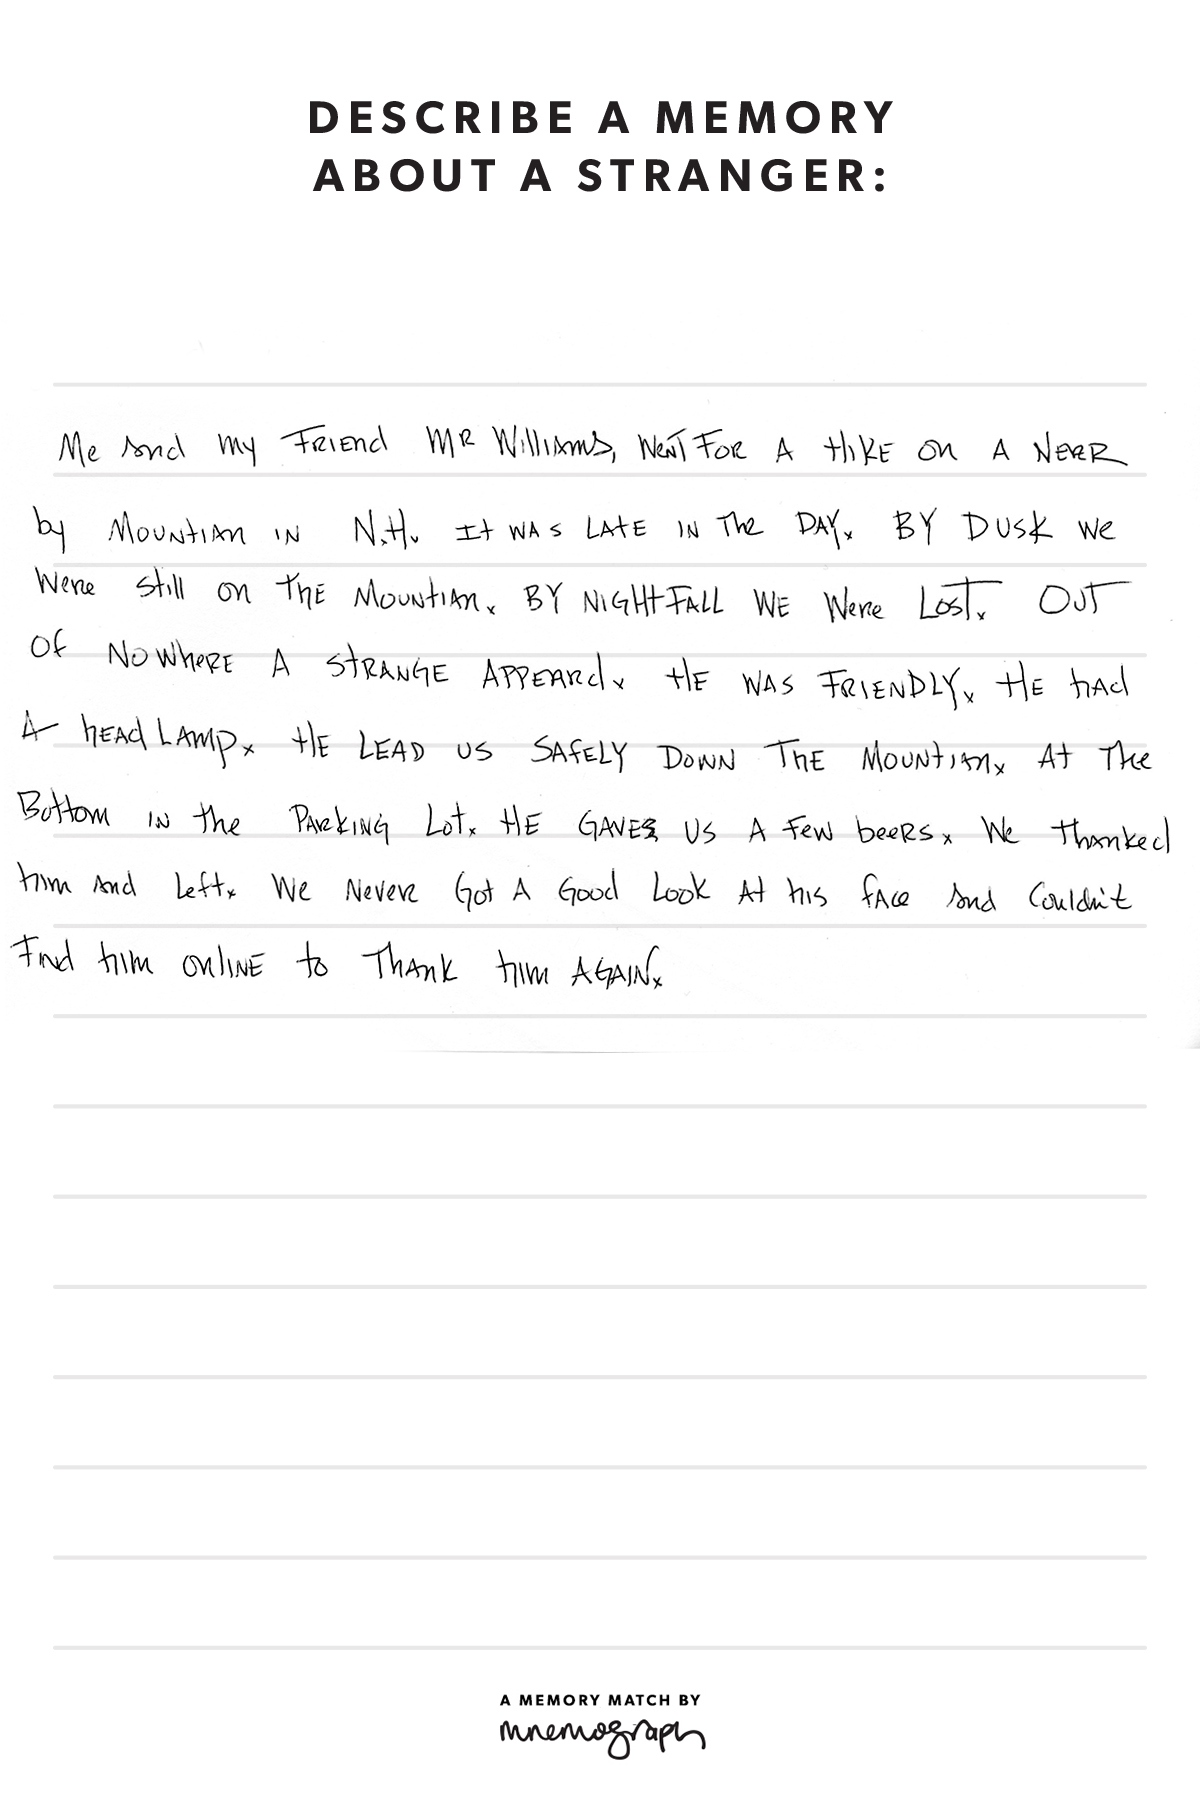 DESCRIBE A MEMORY
ABOUT A STRANGER:
Me And my FRIEnd MR WIllIAMS, WENT FOR A HIKE on A NERR
by MOUNtIAN IN N.H. It WAS LATE IN The DAY. BY DUSK We
Were still on THE MOUNtIAN. BY NIGHtFALL WE Were LOST. OUT
Of NOWhERE A StRANGE APPEARd. HE WAS FRIENDLY. HE hAd
A hEAd LAMp. HE LEAD US SAfELY DOWN THE MOUNtIAN. At The
Bottom IN the PARKING Lot. HE GAVES US A Few beeRs. We thanked
him And Left. We NeveR Got A Good Look At his fAce And Couldn't
Find him onlINE to THANK him AGAIN.
A MEMORY MATCH BY
mnemograph